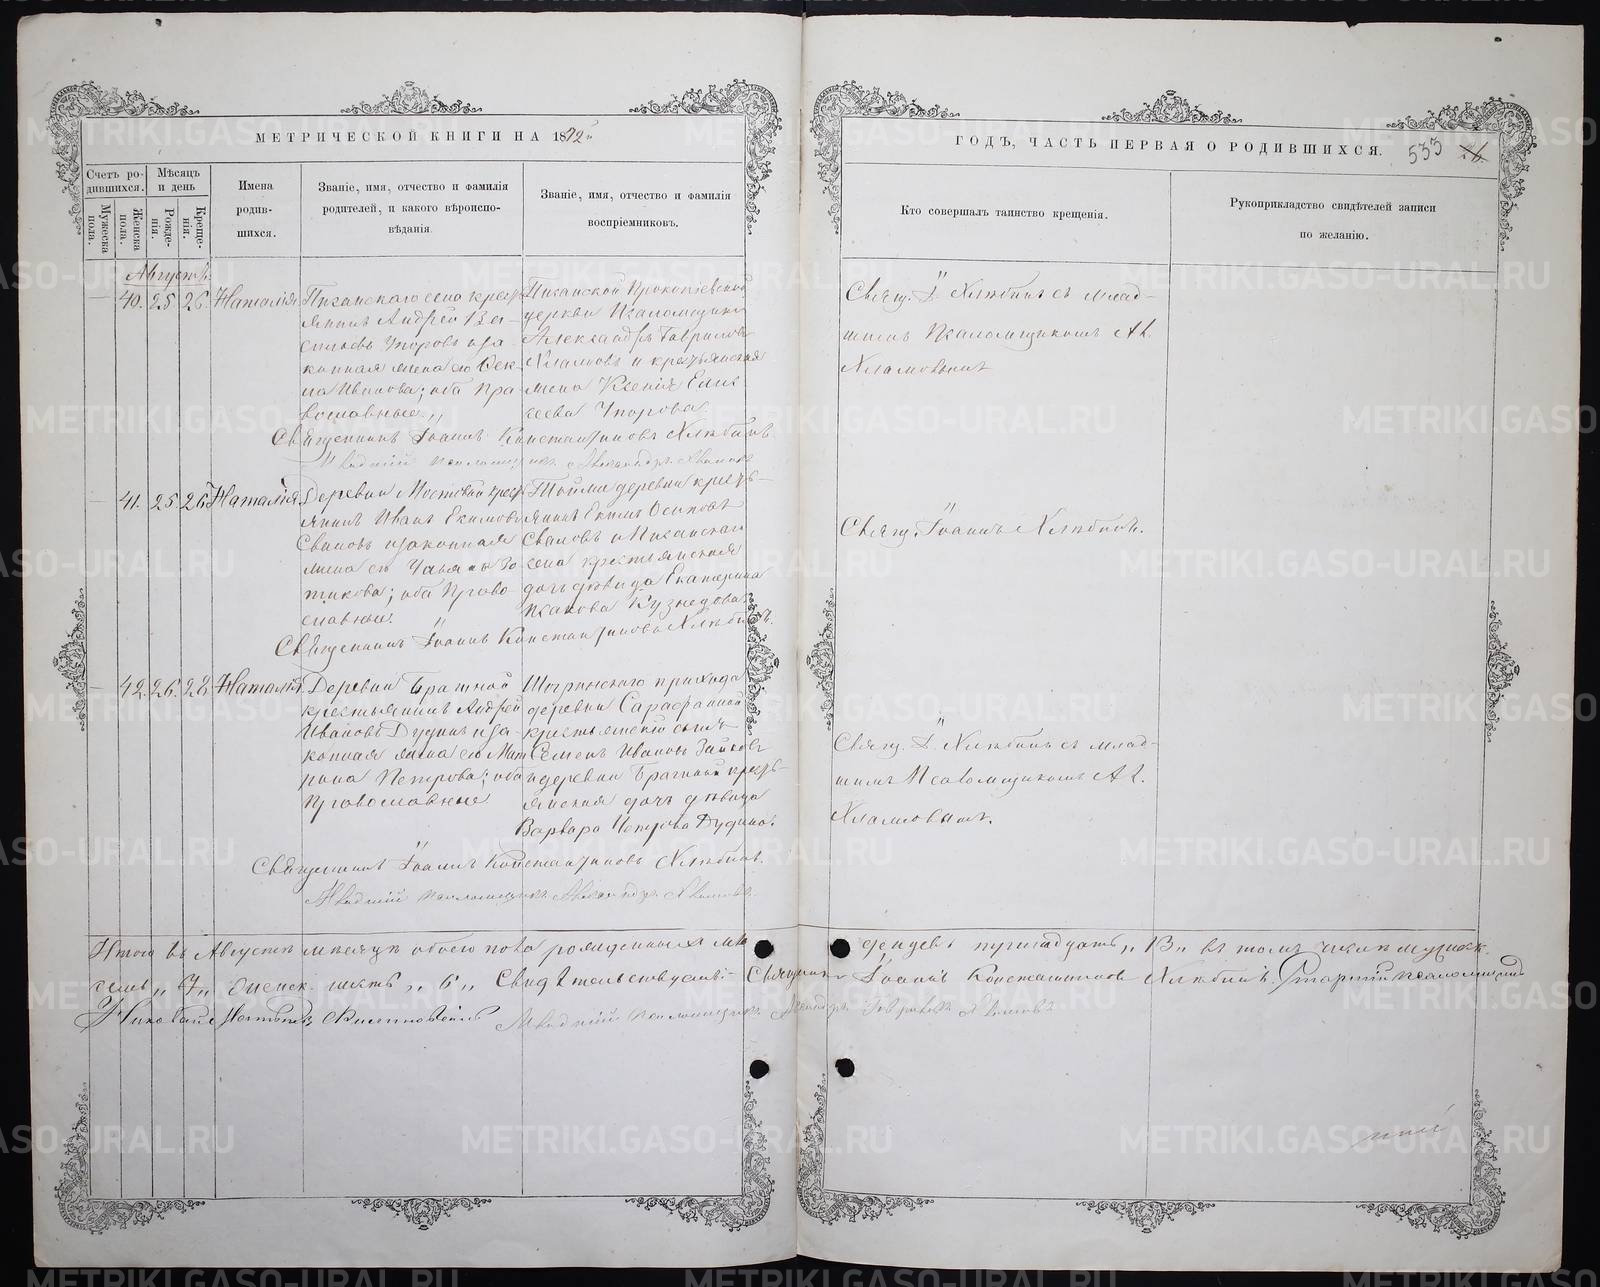 МЕТРИЧЕСКОЙ КНИГИ НА 1872й
ГОДЪ, ЧАСТЬ ПЕРВАЯ О РОДИВШИХСЯ.
533
Счетъ ро-
дившихся.
Мѣсяцъ
и день
Мужеска
пола.
Женска
пола.
Рожде-
нія.
Креще-
нія.
Имена
родив-
шихся.
Званіе, имя, отчество и фамилія
родителей, и какого вѣроиспо-
вѣданія.
Званіе, имя, отчество и фамилія
воспріемниковъ.
Кто совершалъ таинство крещенія.
Рукоприкладство свидѣтелей записи
по желанію.
Августъ
40. 25 26. Наталія
села кресть-
янинъ Андрей Ва-
сильевъ Упоровъ и за-
конная жена его Фек-
ла Иванова; оба пра-
вославные.
Прокопіевской
церкви Псаломщикъ
Александръ Гавриловъ
Хламовъ и крестьянская
жена Ксенія Елис
сеева Упорова.
Свящ. І. Хлѣбинъ съ млад-
шимъ Псаломщикомъ Ал.
Хламовымъ
Священникъ Іоаннъ Константиновъ Хлѣбинъ
Младшій псаломщикъ Александръ Хламовъ
41. 25. 26 Наталія
Деревни Мостовой кресть-
янинъ Иванъ Екимовъ
и законная
жена его
; оба Право-
славные.
Тойже деревни кресть-
янинъ Екимъ Осиповъ
села крестьянская
дочь дѣвица Екатерина
Кузнецова.
Свящ. Іоаннъ Хлѣбинъ.
Священникъ Іоаннъ Константиновъ Хлѣбинъ.
42. 26. 28. Наталія
Деревни Бражной
крестьянинъ Андрей
Ивановъ Дудинъ и за-
конная жена его Мат
рона Петрова; оба
Православные
Шогринскаго прихода
деревни Сарафанной
крестьянскій сынъ
Семенъ Ивановъ Зайковъ
и деревни Бражной кресть-
янская дочь дѣвица
Варвара Петрова Дудина.
Свящ. І. Хлѣбинъ съ млад-
шимъ Псаломщикомъ Ал.
Хламовымъ.
Священникъ Іоаннъ Константиновъ Хлѣбинъ.
Младшій псаломщикъ Александръ Хламовъ.
Итого въ Августѣ мѣсяцѣ обоего пола рожденныхъ мла
денцевъ тринадцать „13„ въ томъ числѣ мужеск.
семь „7„ женск. шесть „6„ Свидѣтельствуемъ:- Священникъ Іоаннъ Константиновъ Хлѣбинъ. Старшій псаломщикъ
Николай Младшій псаломщикъ Александръ Гавриловъ Хламовъ
METRIKI.GASO-URAL.RU